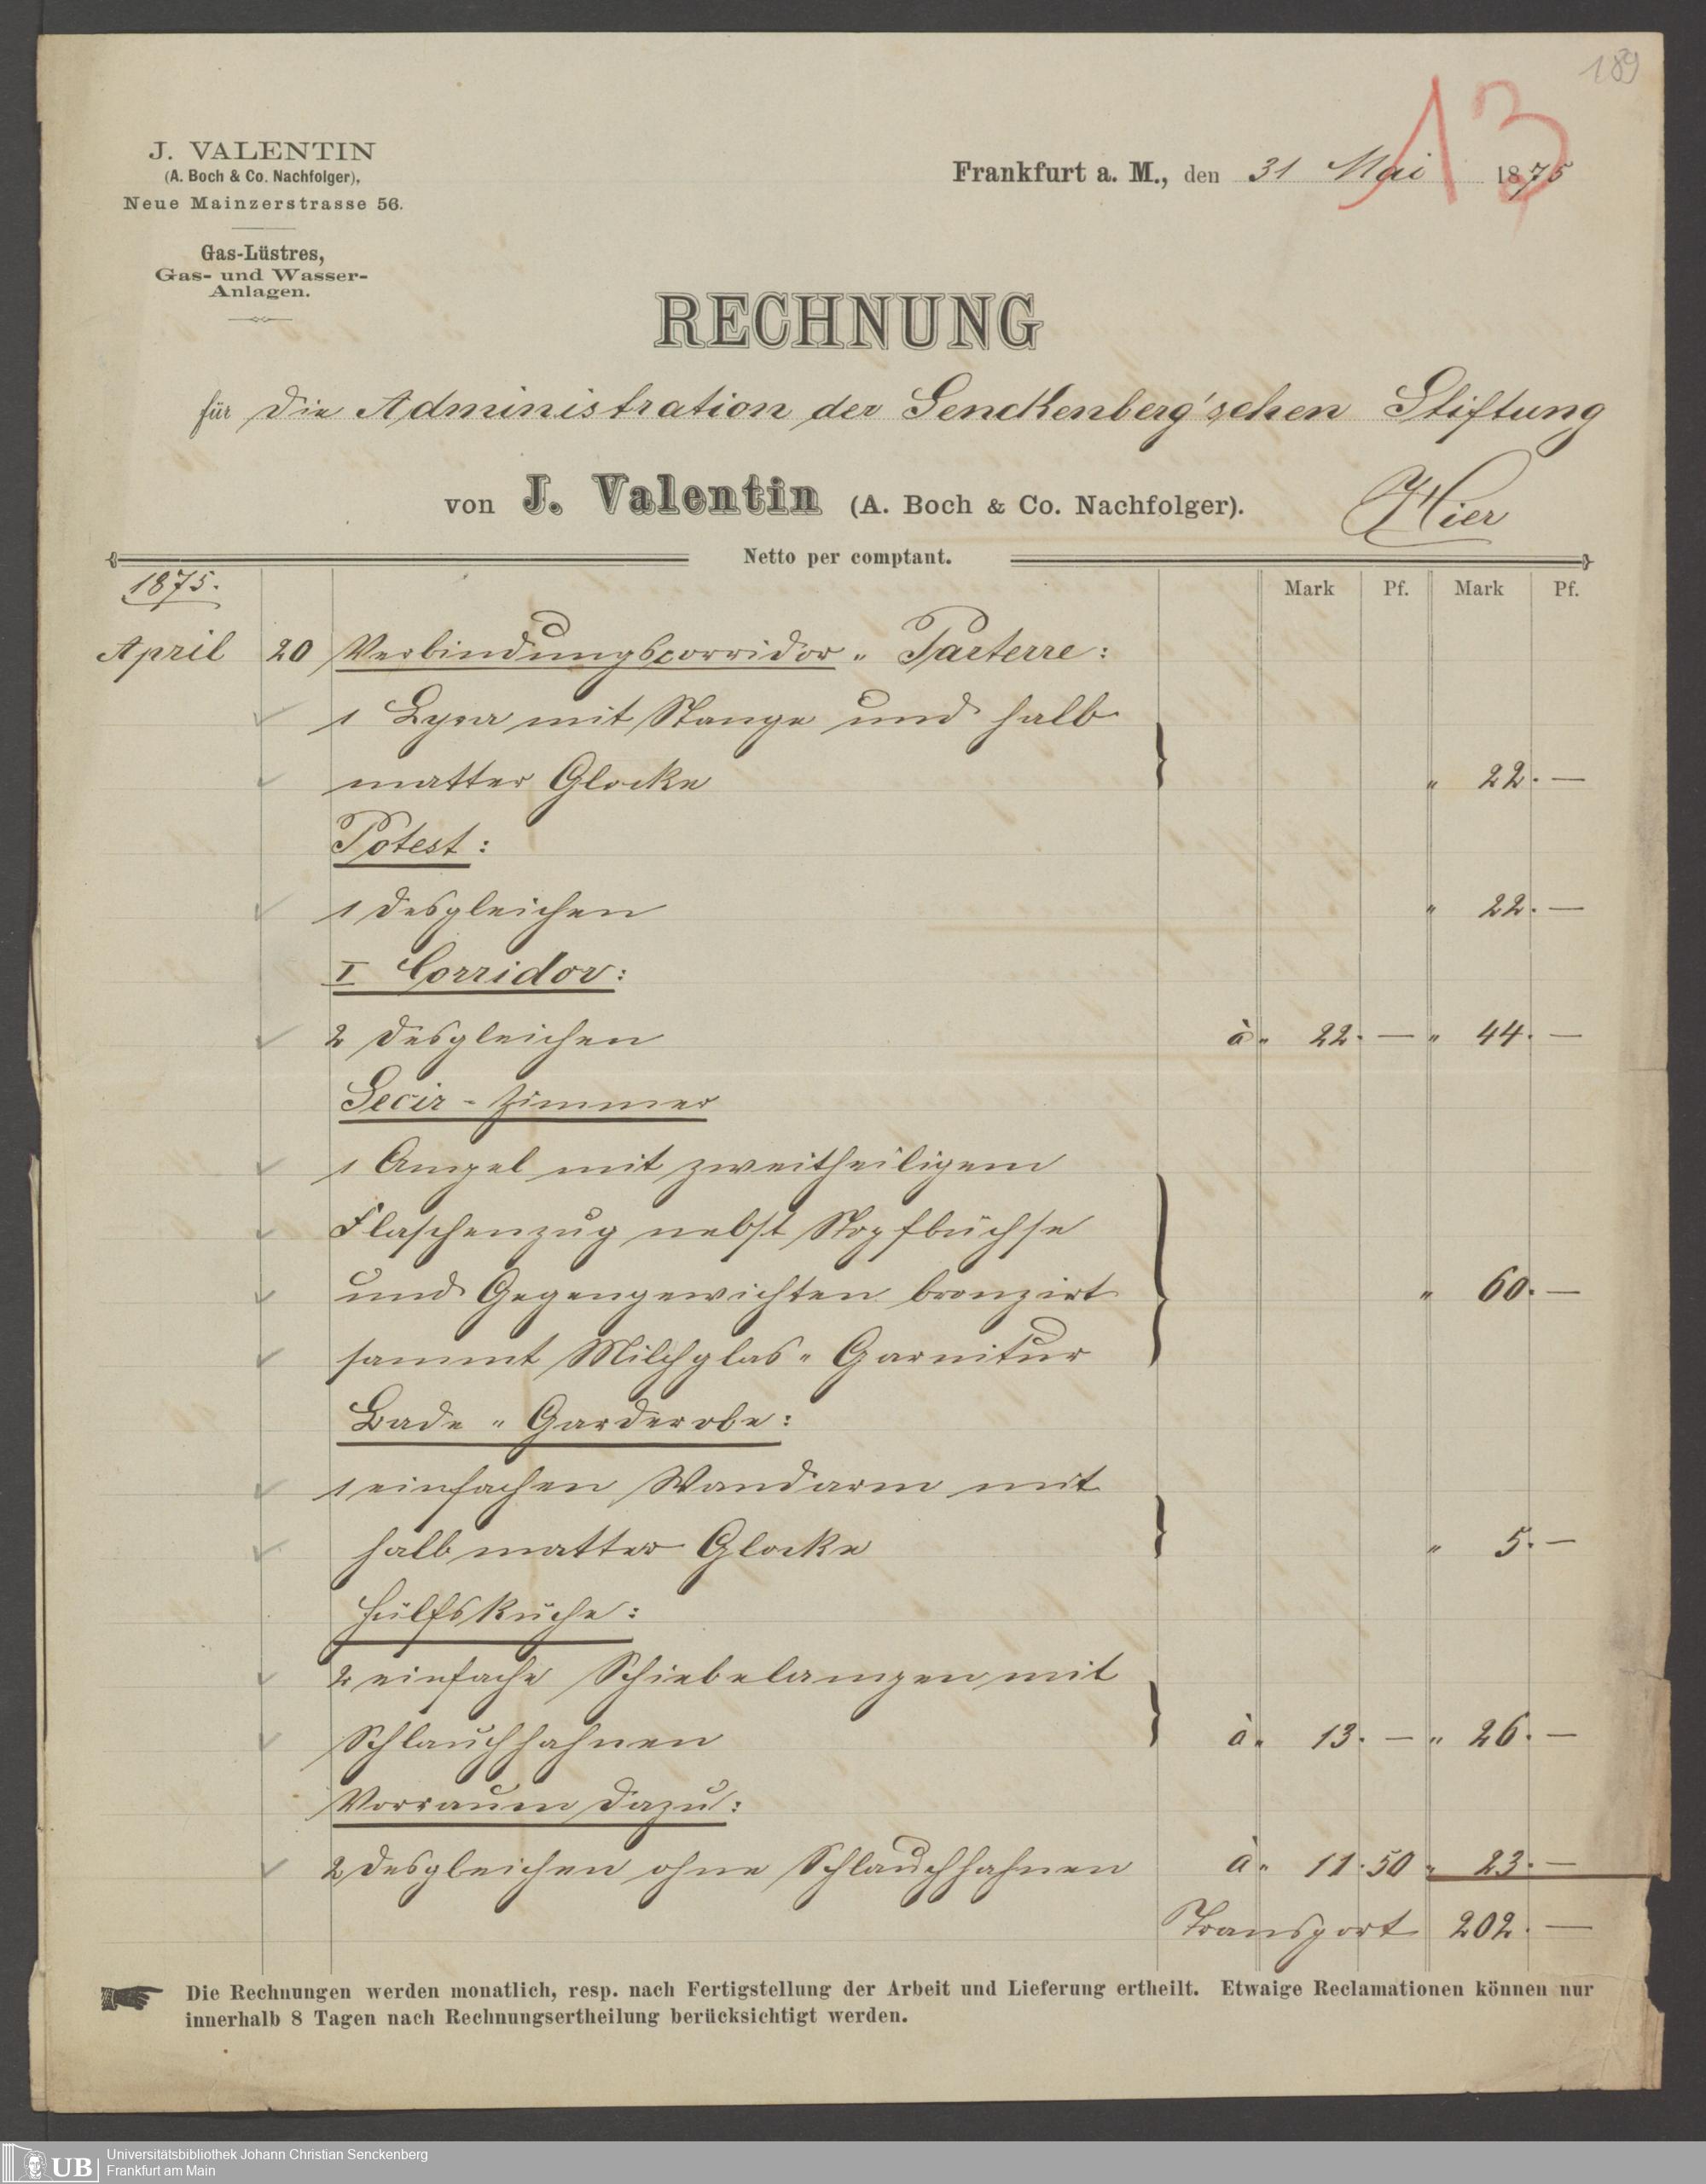 189
13
J. VALENTIN
(A. Boch & Co. Nachfolger),
Neue Mainzerstrasse 56.
Gas-Lüstres,
Gas- und Wasser-
Anlagen.
Frankfurt a. M., den 31 Mai 1875
RECHNUNG
für die Administration der Senckenberg'schen Stiftung
von J. Valentin (A. Boch & Co. Nachfolger). Hier
Netto per comptant.
1875. Mark Pf. Mark Pf.
April 20 Verbindungscorridor " Parterre:
1 Lyra mit Stange und halb
matter Glocke " 22. —
Potest:
1 desgleichen " 22. —
I Corridor:
2 desgleichen à " 22. — " 44. —
Secir - Zimmer
1 Ampel mit zweitheiligem
Flaschenzug nebst Stopfbüchse
und Gegengewichten bronzirt " 60. —
sammt Milchglas " Garnitur
Bade " Garderobe:
1 einfachen Wandarm mit
halb matter Glocke " 5. —
Hülfsküche:
2 einfache Schiebelampen mit
Schlauchhahnen à " 13. — " 26. —
Vorraum dazu:
2 desgleichen ohne Schlauchhahnen à " 11. 50 " 23. —
Transport 202. —
Die Rechnungen werden monatlich, resp. nach Fertigstellung der Arbeit und Lieferung ertheilt. Etwaige Reclamationen können nur
innerhalb 8 Tagen nach Rechnungsertheilung berücksichtigt werden.
UB Universitätsbibliothek Johann Christian Senckenberg
Frankfurt am Main